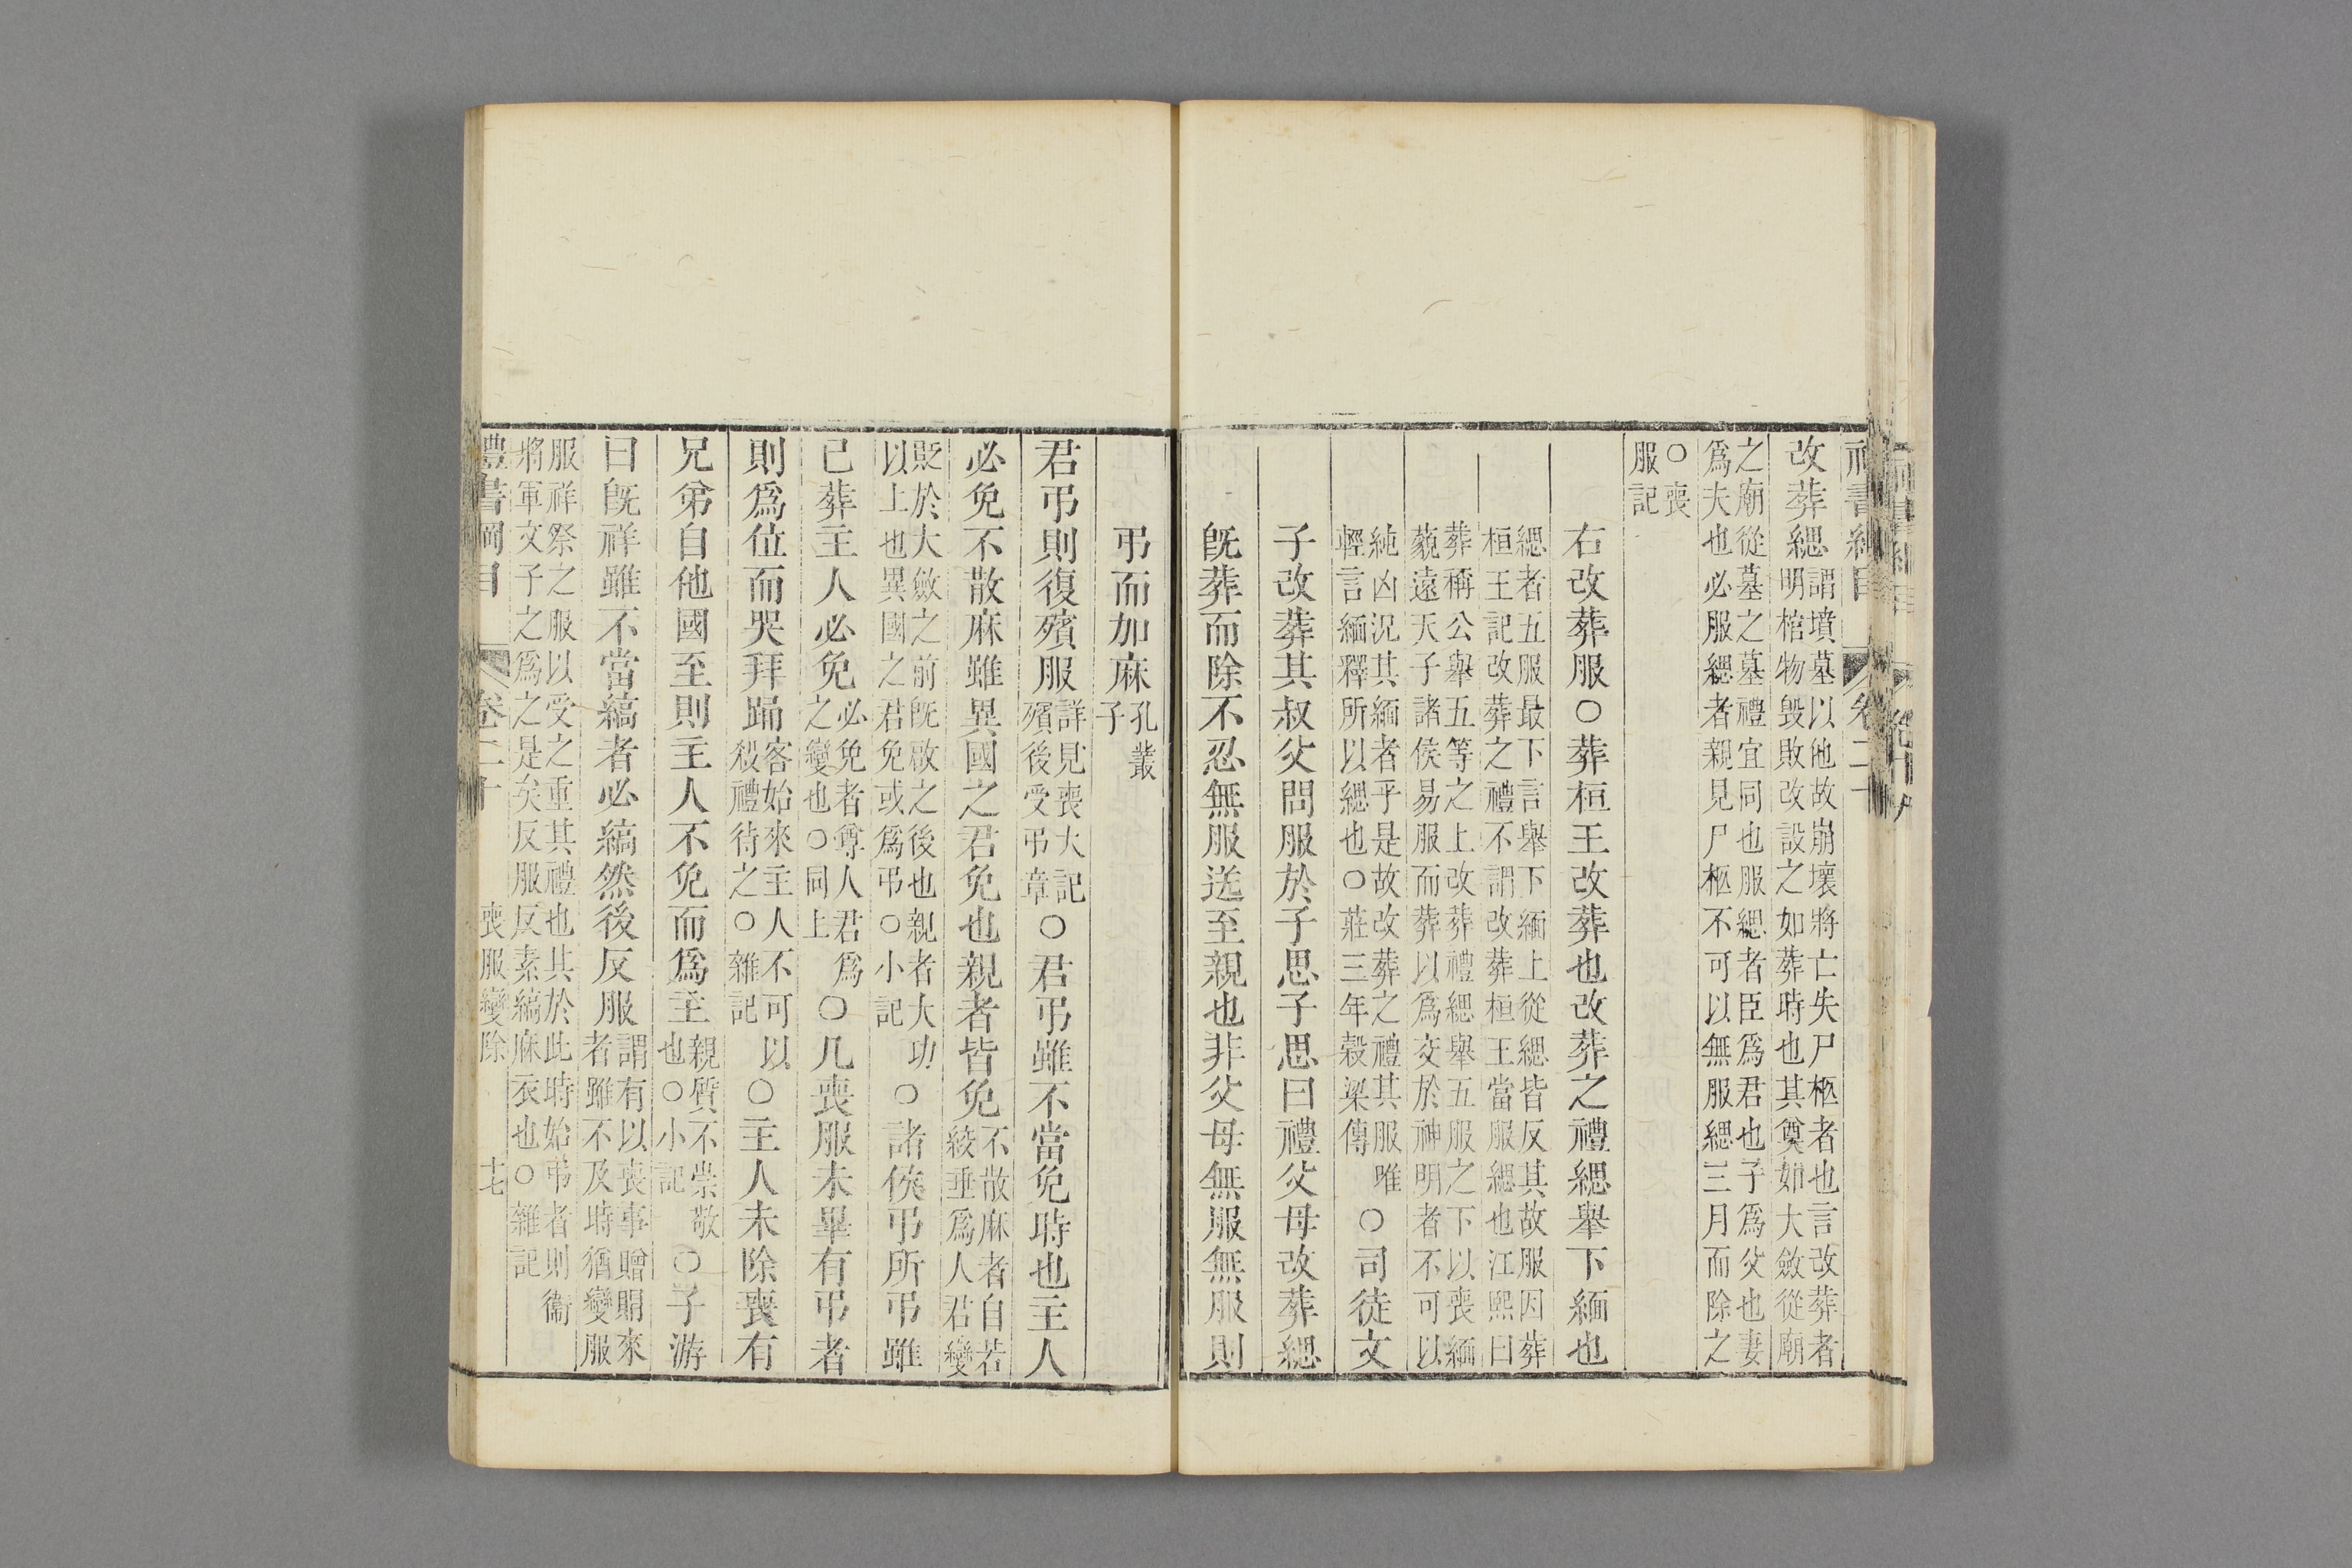 改葬緦謂墳墓以他故崩壞將亡失尸柩者也言改葬者
明棺物毀敗改設之如葬時也其奠如大斂從廟
之廟從墓之墓禮宜同也服緦者臣爲君也子爲父也妻
爲夫也必服緦者親見尸柩不可以無服緦三月而除之
○喪
服記
右改葬服○葬桓王改葬也改葬之禮緦舉下緬也
緦者五服最下言舉下緬上從緦皆反其故服因葬
桓王記改葬之禮不謂改葬桓王當服緦也江熙曰
葬稱公舉五等之上改葬禮緦舉五服之下以喪緬
藐遠天子諸侯易服而葬以爲交於神明者不可以
純凶況其緬者乎是故改葬之禮其服唯
輕言緬釋所以緦也○莊三年穀梁傳
○司徒文
子改葬其叔父問服於子思子思曰禮父母改葬緦
旣葬而除不忍無服送至親也非父母無服無服則
弔而加麻孔叢
子
君弔則復殯服詳見喪大記
殯後受弔章
○君弔雖不當免時也主人
必免不散麻雖異國之君免也親者皆免不散麻者自若
絞垂爲人君變
貶於大斂之前旣啟之後也親者大功
以上也異國之君免或爲弔○小記
○諸侯弔所弔雖
已葬主人必免必免者尊人君爲
之變也○同上
○凡喪服未畢有弔者
則爲位而哭拜踊客始來主人不可以
殺禮待之○雜記
○主人未除喪有
兄弟自他國至則主人不免而爲主親質不崇敬
也○小記
○子游
曰旣祥雖不當縞者必縞然後反服謂有以喪事贈賵來
者雖不及時猶變服
服祥祭之服以受之重其禮也其於此時始弔者則衞
將軍文子之爲之是矣反服反素縞麻衣也○雜記
禮書綱目
卷二十
喪服變除
十七